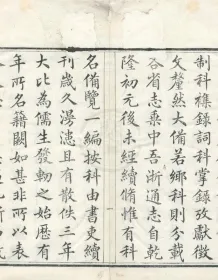 制科襍錄詞科掌錄攷獻徵
文釐然大備若鄉科則分載
各省志乘中吾浙通志自乾
隆初元後未經續脩惟有科
名備覽一編按科由書吏續
刊歲久漫漶且有散佚三年
大比為儒生發軔之始歷有
年所名籍闕如甚非所以表